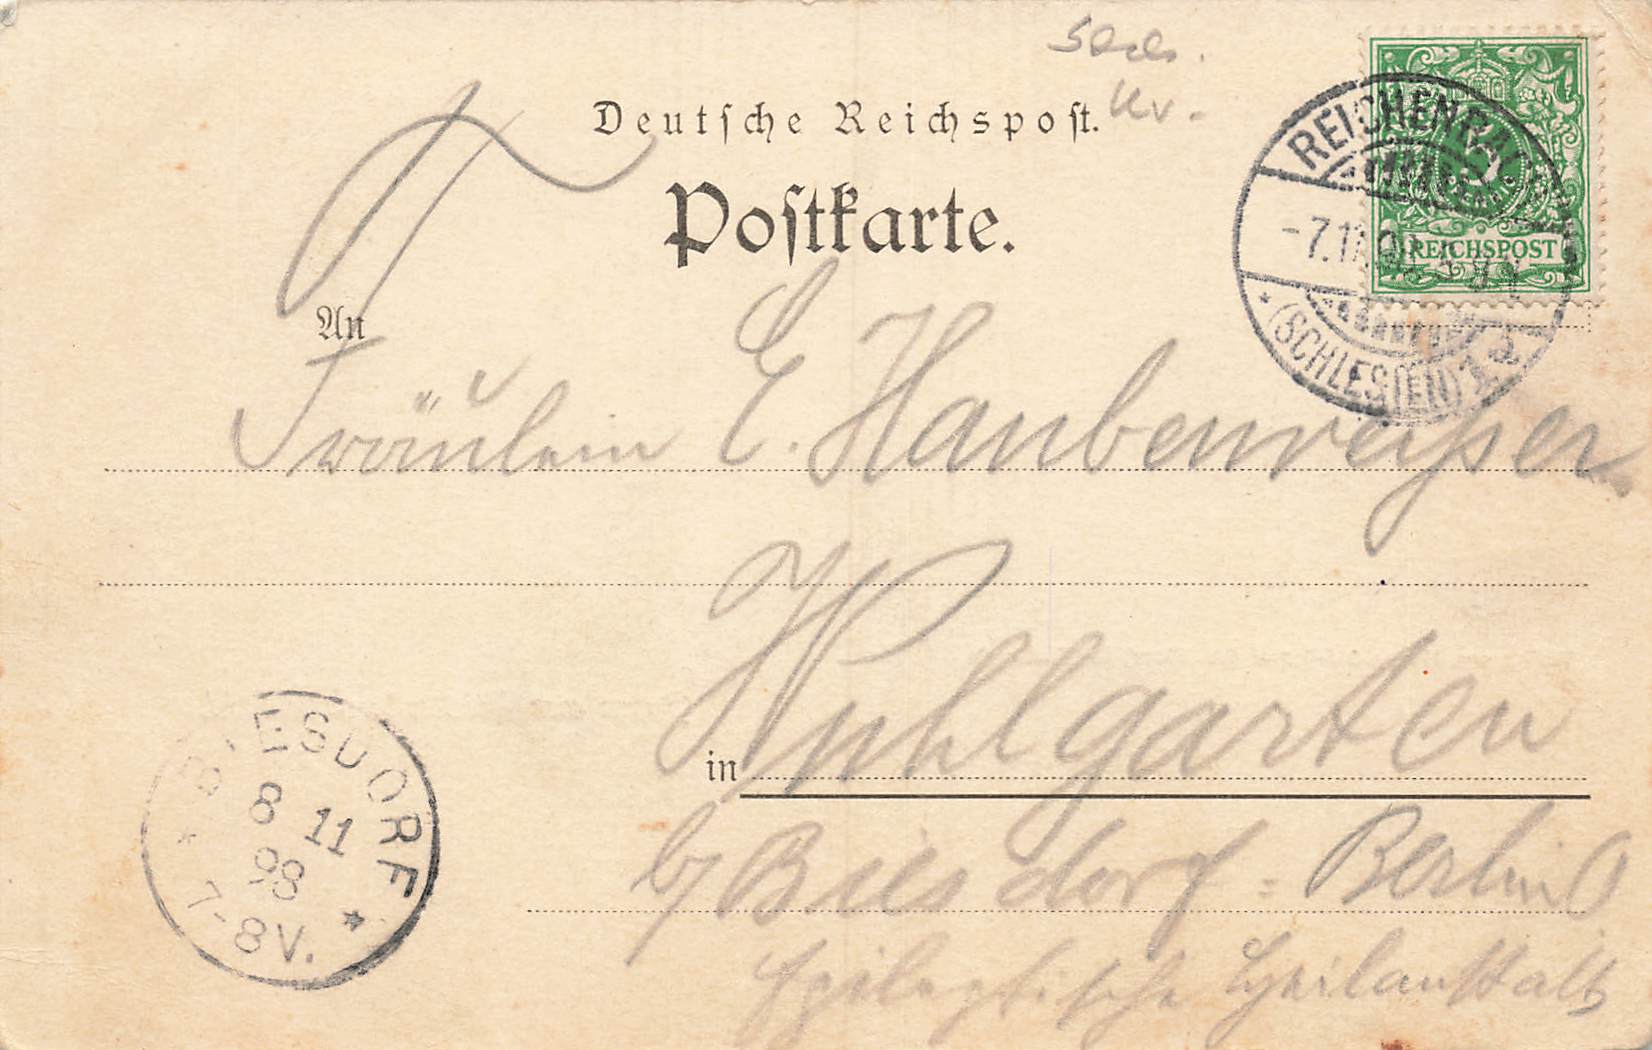 Deutsche Reichspost.
Postkarte.
REICHENBACH
5
REICHSPOST
-7.11.98
(SCHLESIEN)
An
Fräulein E. Haubenreisser
in Wuhlgarten
b/ Biesdorf = Berlin
Epileptische Heilanstalt
BIESDORF
8 11
98
7-8V.